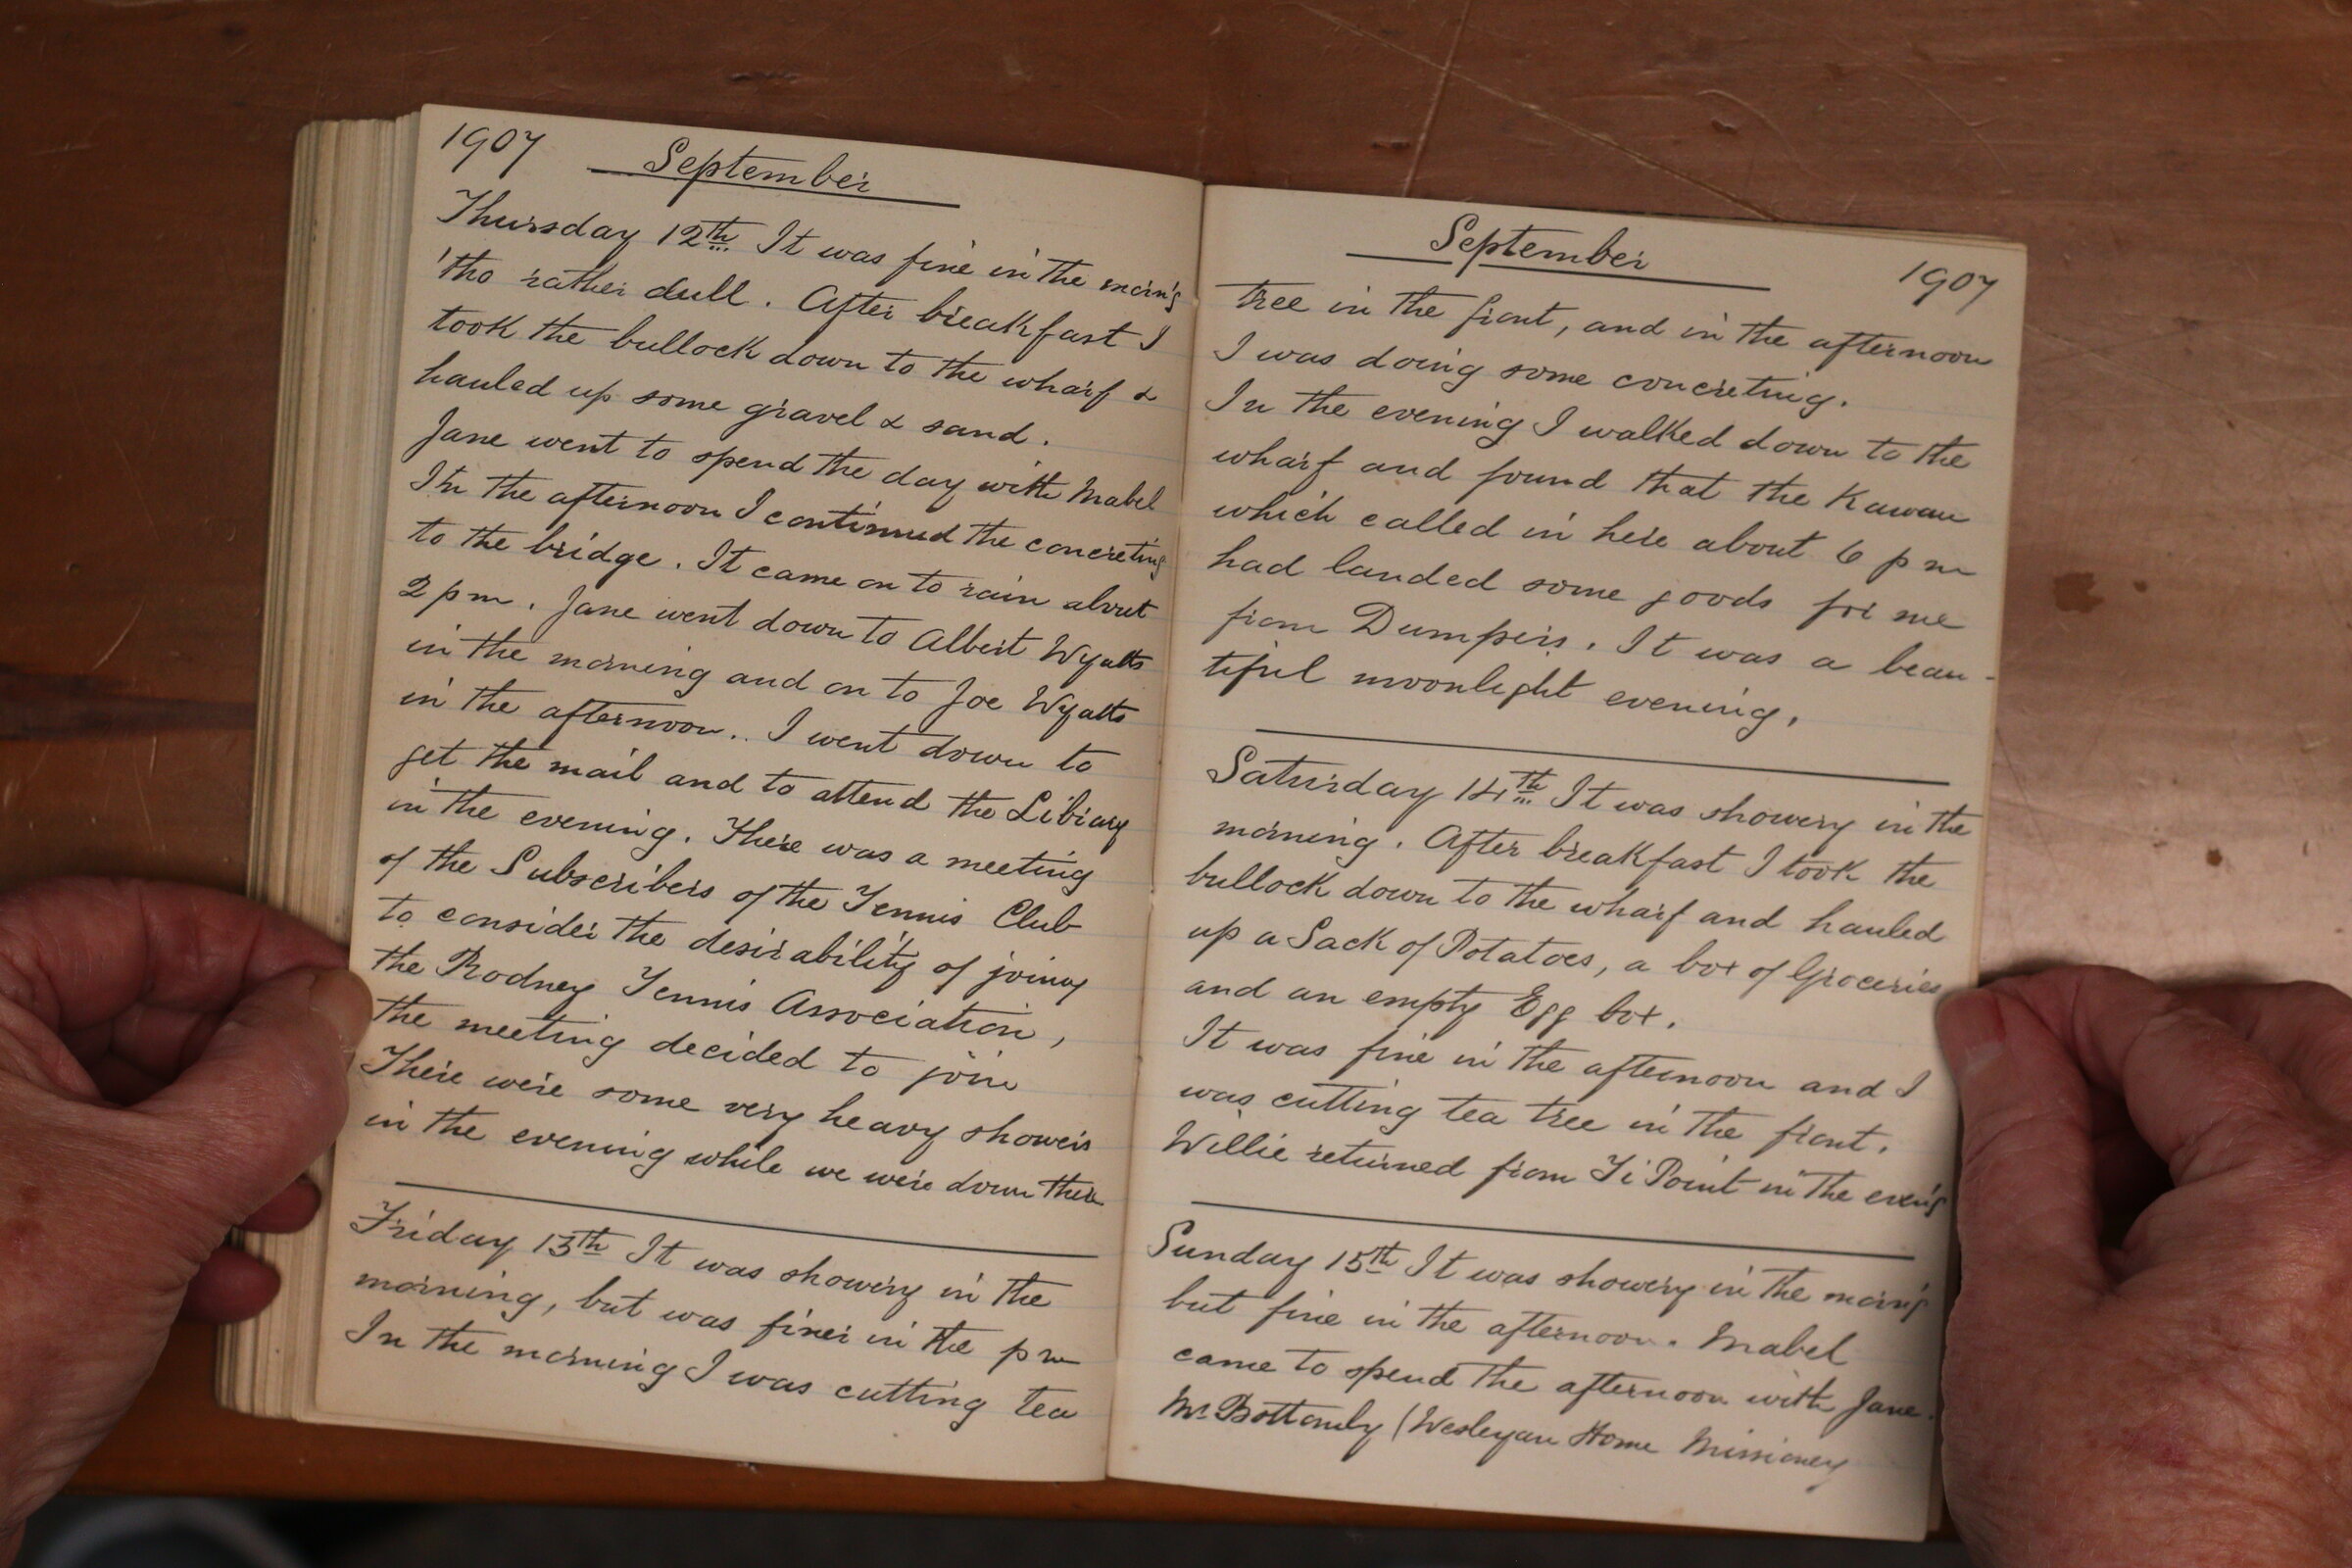 1907
September
Thursday 12th It was fine in the morn'g
'tho rather dull. After breakfast I
took the bullock down to the wharf &
hauled up some gravel & sand.
Jane went to spend the day with Mabel
In the afternoon I continued the concreting
to the bridge. It came on to rain about
2 pm. Jane went down to Albert Wyatts
in the morning and on to Joe Wyatts
in the afternoon.. I went down to
get the mail and to attend the Library
in the evening. There was a meeting
of the Subscribers of the Tennis Club
to consider the desirability of joing
the Rodney Tennis Association,
the meeting decided to join
There were some very heavy showers
in the evening while we were down there
Friday 13th It was showery in the
morning, but was finer in the pm
In the morning I was cutting tea
September
1907
tree in the front, and in the afternoon
I was doing some concreting.
In the evening I walked down to the
wharf and found that the Kawau
which called in here about 6 pm
had landed some goods for me
from Dumpers. It was a beau-
tiful moonlight evening.
Saturday 14th It was showery in the
morning. After breakfast I took the
bullock down to the wharf and hauled
up a Sack of Potatoes, a box of Groceries
and an empty Egg box.
It was fine in the afternoon and I
was cutting tea tree in the front.
Willie returned from Ti Point in the even'g
Sunday 15th It was showery in the morn'g
but fine in the afternoon. Mabel
came to spend the afternoon with Jane.
Mr Bottomly (Wesleyan Home Missioney